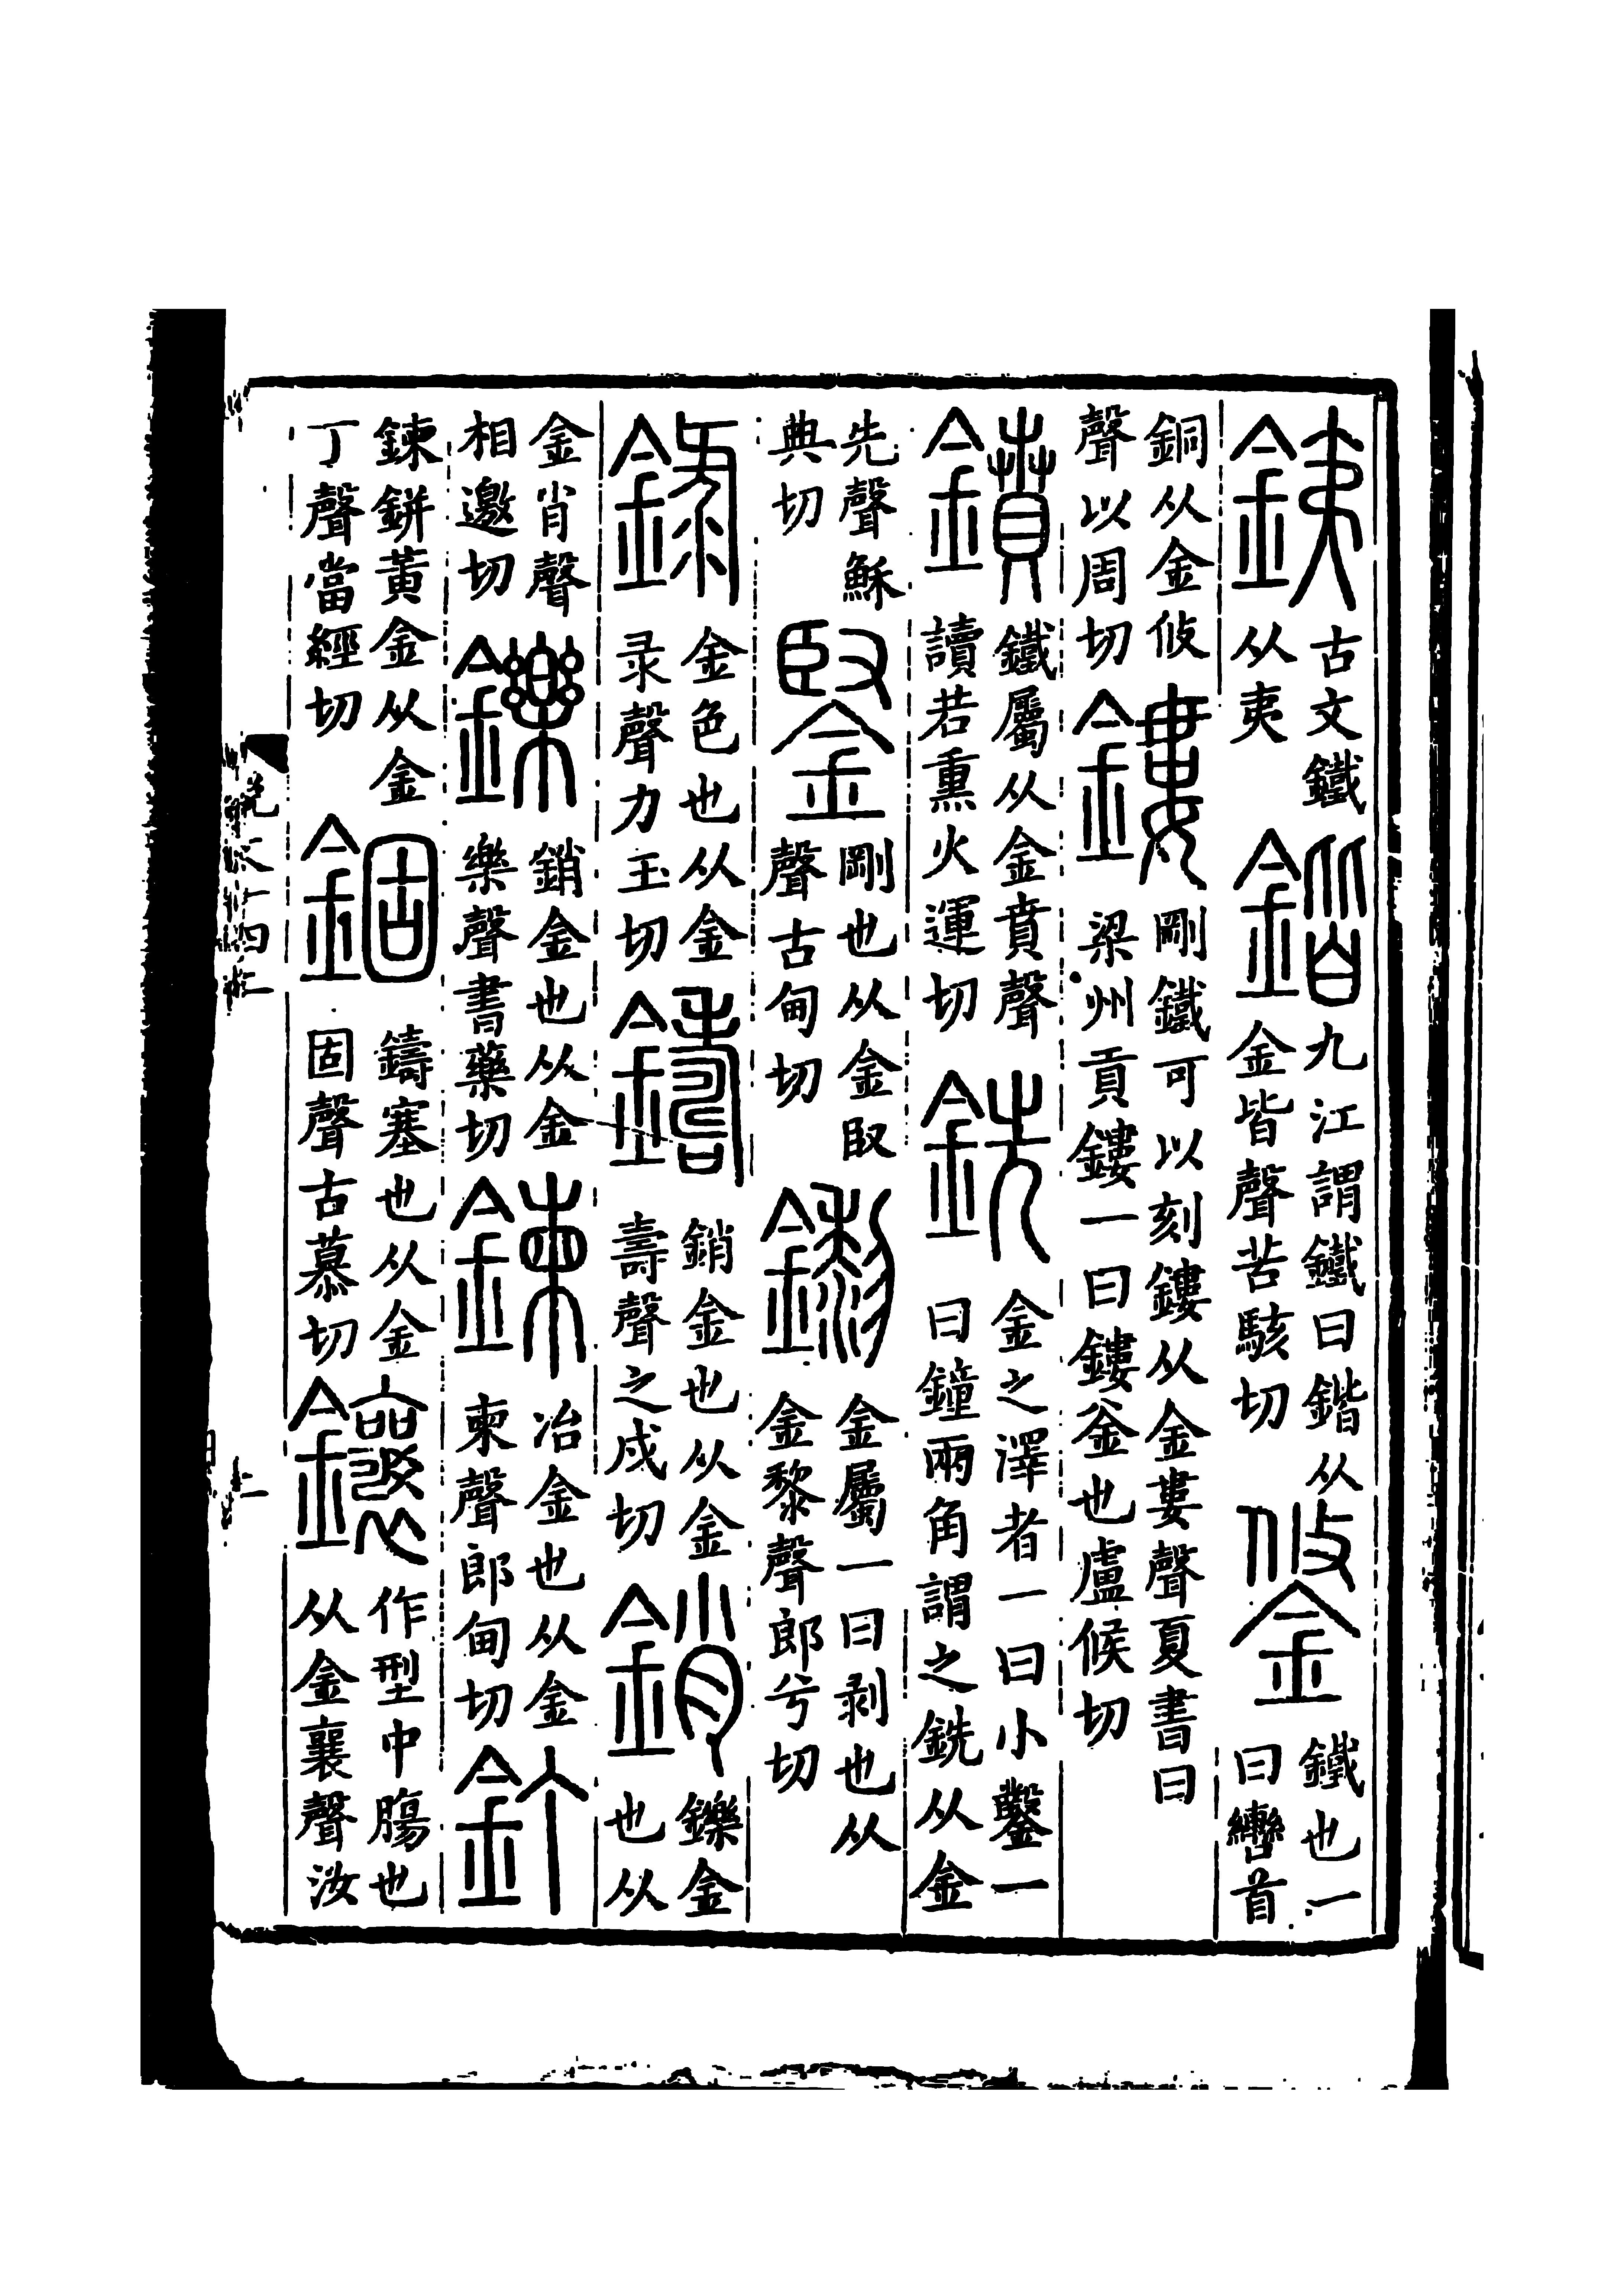 銕古文鐵从夷鍇九江謂鐵曰鍇从金皆聲苦駭切鋚鐵也一曰轡首
銅从金攸聲以周切鏤剛鐵可以刻鏤从金婁聲夏書曰梁州貢鏤一曰鏤釜也盧候切
鐼鐵屬从金賁聲讀若熏火運切銑金之澤者一曰小鑿一曰鐘兩角謂之銑从金
先聲穌典切鋻剛也从金臤聲古甸切鑗金屬一曰剥也从金黎聲郎兮切
錄金色也从金录聲力玉切鑄銷金也从金壽聲之戍切銷鑠金也从
金肖聲相邀切鑠銷金也从金樂聲書藥切鍊冶金也从金柬聲郎甸切釘
鍊鉼黃金从金丁聲當經切錮鑄塞也从金固聲古慕切鑲作型中膓也从金襄聲汝